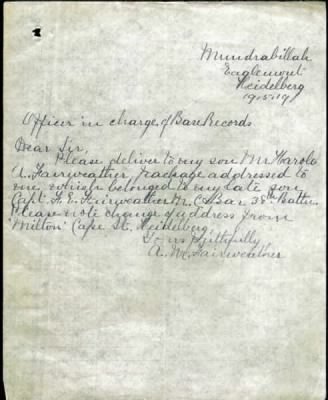 Mundrabillah
Eaglemont
Heidelberg
19.5.19
Officer in charge of Base Records
Dear Sir,
Please deliver to my son Mr Harold
A. Fairweather, package addressed to
me, which belonged to my late son
Capt. F. E. Fairweather M.C. Bar 38th Battn.
Please note change of address from
"Milton" Cape St. Heidelberg
Yours faithfully
A. M. Fairweather